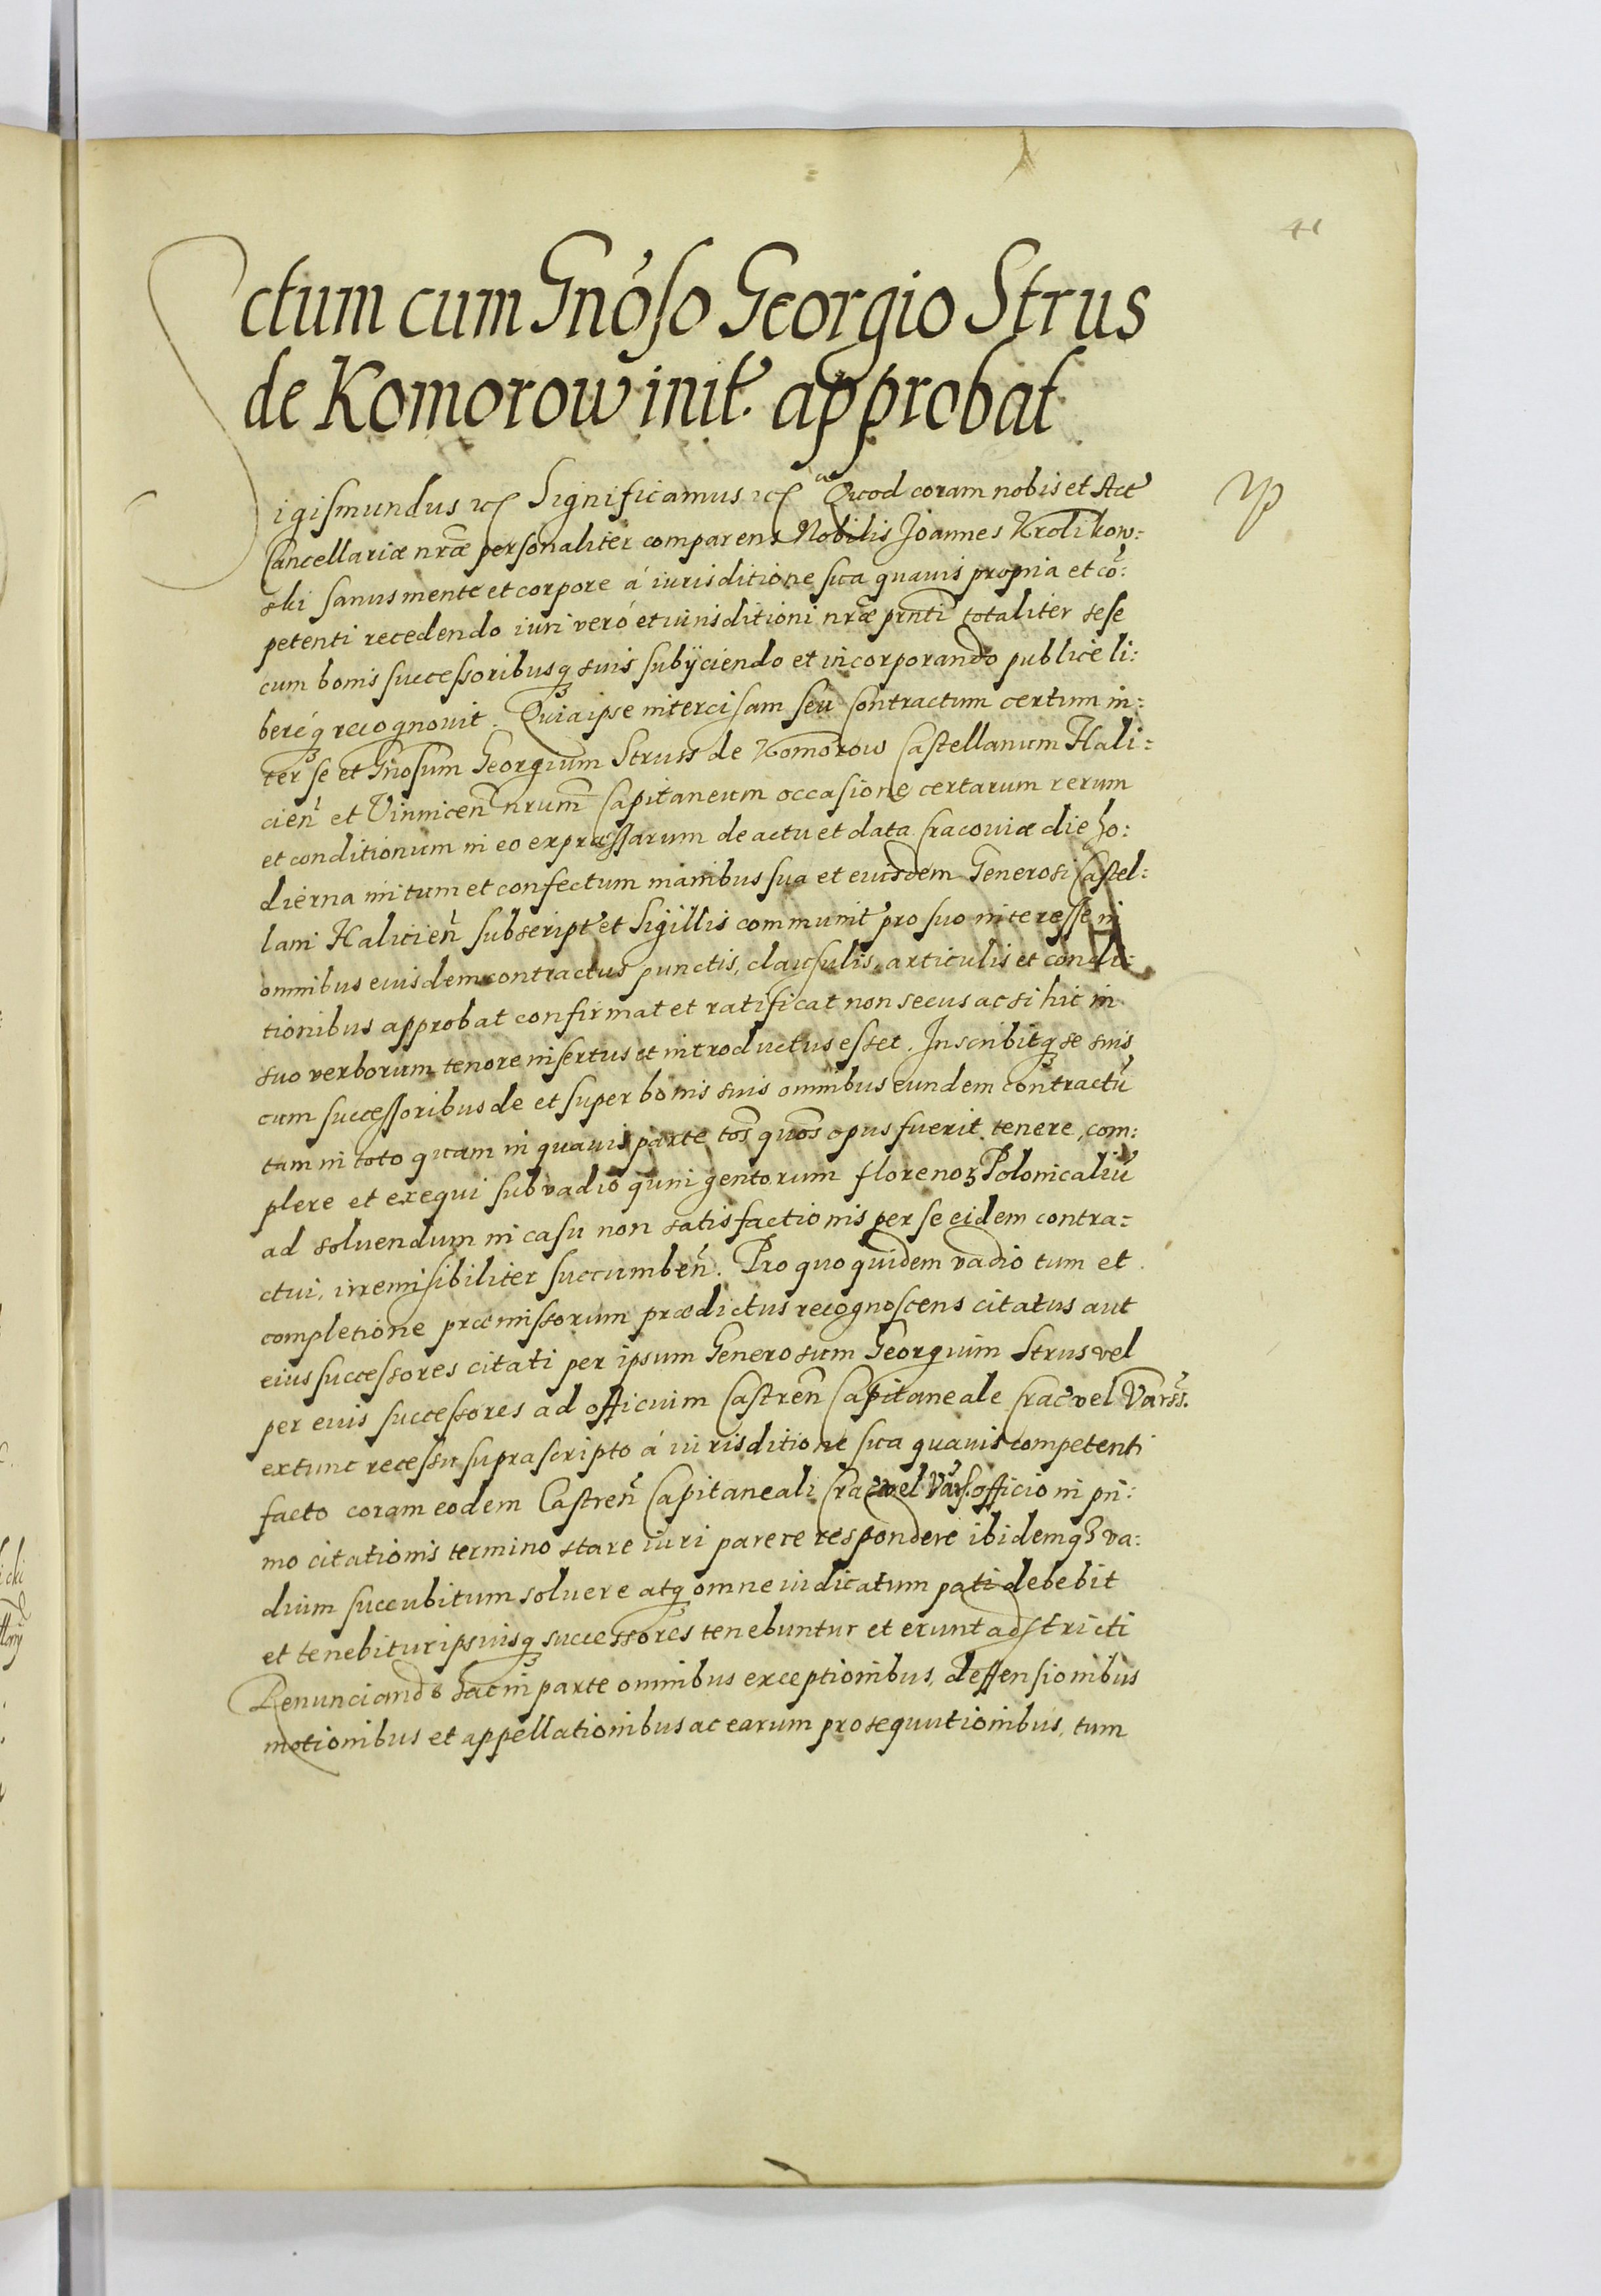 41
ctum cum Gnoso Georgio Strus
de Komorow init. approbat
igismundus etc Significamus etc Quod coram nobis et Act
Cancellariæ nræ personaliter comparens Nobilis Joannes Krolikow:
ski sanus mente et corpore á iurisditione sua quauis propria et cõ:
petenti recedendo iuri veró et iurisditioni nræ prñti totaliter sese
cum bonis successoribusq suis subijciendo et incorporando publicè li:
beréq recognouit. Quia ipse intercisam seu Contractum certum in:
ter se et Gnosum Georgium Struss de Komorow Castellanum Hali:
cieñ et Vinniceñ nrum Capitaneum occasione certarum rerum
et conditionum in eo expræssarum de actu et data Cracouiæ die ho:
dierna initum et confectum manibus sua et eiusdem Generosi Castel:
lani Halicieñ subscript et Sigillis communit pro suo interesse in
omnibus eiusdem contractus punctis, clausulis, articulis et condi:
tionibus approbat confirmat et ratificat non secus ac si hic in
suo verborum tenore insertus et introductus esset. Inscribitq se suis
cum successoribus de et super bonis suis omnibus eundem contractũ
tam in toto quam in quauis parte tos quos opus fuerit tenere, com:
plere et exequi sub vadio quingentorum florenoꝝ Polonicaliũ
ad soluendum in casu non satisfactionis per se eidem contra:
ctui, irremisibiliter succumbeñ. Pro quo quidem vadio tum et
completione præmissorum prædictus recognoscens citatus aut
eius successores citati per ipsum Generosum Georgium Strus vel
per eius successores ad officium Castreñ Capitaneale Crac vel Varss.
extunc recessu suprascripto á iurisditione sua quauis competenti
facto coram eodem Castreñ Capitaneali Crac vel Vars. officio in pri:
mo citationis termino stare iuri parere respondere ibidemq va:
dium succubitum soluere atq omne iudicatum pati debebit
et tenebitur ipsiusq successores tenebuntur et erunt adstricti
Renunciando hac in parte omnibus exceptionibus, deffensionibus
motionibus et appellationibus ac earum prosequutionibus, tum